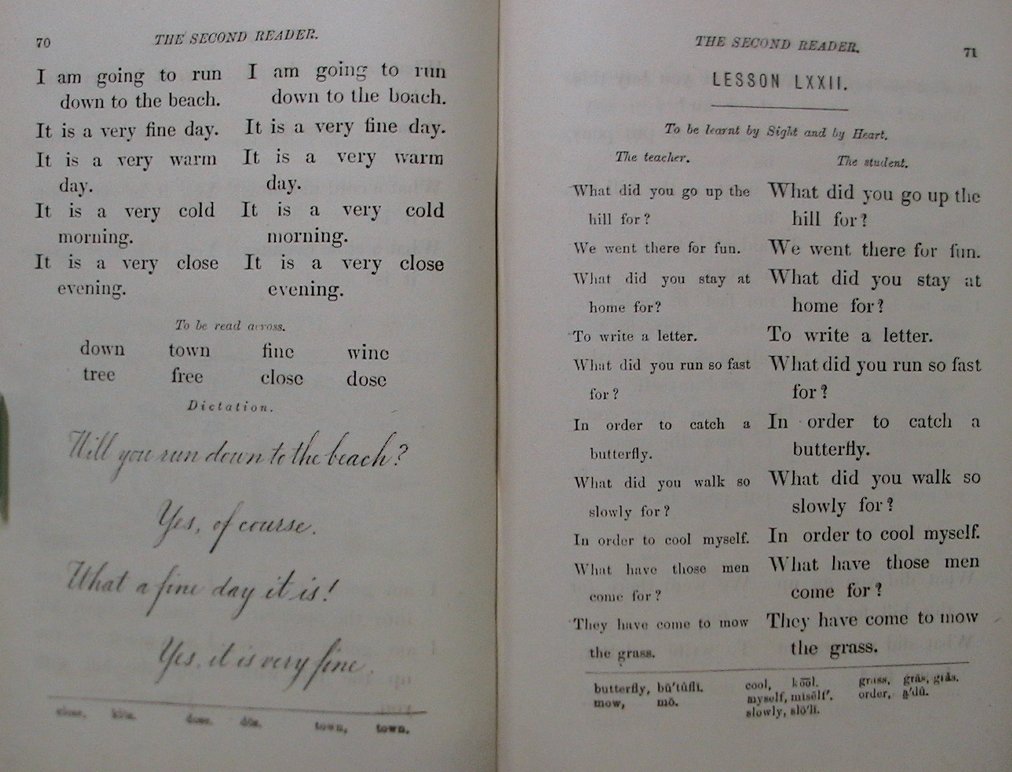 70
THE SECOND READER.
I am going to run
down to the beach.
It is a very fine day.
It is a very warm
day.
It is a very cold
morning.
It is a very close
evening.
I am going to run
down to the beach.
It is a very fine day.
It is a very warm
day.
It is a very cold
morning.
It is a very close
evening.
To be read across.
down town fine wine
tree free close dose
Dictation.
Will you run down to the beach?
Yes, of course.
What a fine day it is!
Yes, it is very fine.
close, dose, town, town.
THE SECOND READER.
71
LESSON LXXII.
To be learnt by Sight and by Heart.
The teacher.
What did you go up the
hill for?
We went there for fun.
What did you stay at
home for?
To write a letter.
What did you run so fast
for?
In order to catch a
butterfly.
What did you walk so
slowly for?
In order to cool myself.
What have those men
come for?
They have come to mow
the grass.
The student.
What did you go up the
hill for?
We went there for fun.
What did you stay at
home for?
To write a letter.
What did you run so fast
for?
In order to catch a
butterfly.
What did you walk so
slowly for?
In order to cool myself.
What have those men
come for?
They have come to mow
the grass.
butterfly, bŭ'tŭflī.
mow, mō.
cool, ko͞ol.
myself, mīsĕlf'.
slowly, slō'lĭ.
grass,
order,